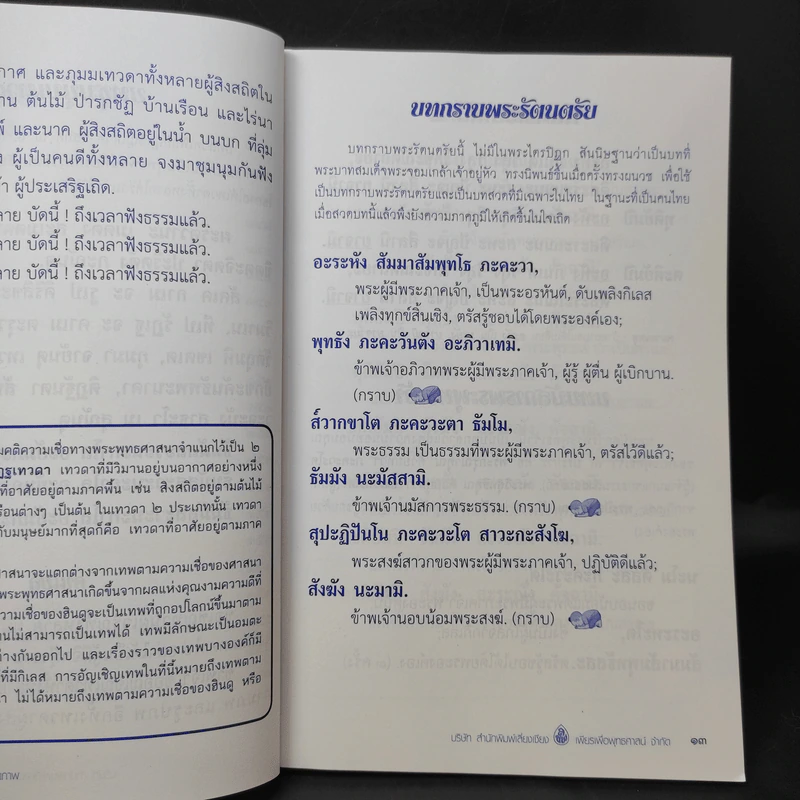 กาศ และภุมมเทวดาทั้งหลายผู้สิงสถิตใน
าน ต้นไม้ ป่ารกชัฏ บ้านเรือน และไร่นา
และนาค ผู้สิงสถิตอยู่ในน้ำ บนบก ที่ลุ่ม
ผู้เป็นคนดีทั้งหลาย จงมาชุมนุมกันฟัง
ผู้ประเสริฐเถิด.
ลาย บัดนี้ ! ถึงเวลาฟังธรรมแล้ว.
ลาย บัดนี้ ! ถึงเวลาฟังธรรมแล้ว.
ลาย บัดนี้ ! ถึงเวลาฟังธรรมแล้ว.
มคติความเชื่อทางพระพุทธศาสนาจำแนกไว้เป็น ๒
เทวดา เทวดาที่มีวิมานอยู่บนอากาศอย่างหนึ่ง
ที่อาศัยอยู่ตามภาคพื้น เช่น สิงสถิตอยู่ตามต้นไม้
รือนต่างๆ เป็นต้น ในเทวดา ๒ ประเภทนั้น เทวดา
กับมนุษย์มากที่สุดก็คือ เทวดาที่อาศัยอยู่ตามภาค
าสนาจะแตกต่างจากเทพตามความเชื่อของศาสนา
พระพุทธศาสนาเกิดขึ้นจากผลแห่งคุณงามความดีที่
ความเชื่อของฮินดูจะเป็นเทพที่ถูกอุปโลกน์ขึ้นมาตาม
านไม่สามารถเป็นเทพได้ เทพมีลักษณะเป็นอมตะ
ต่างกันออกไป และเรื่องราวของเทพบางองค์ก็มี
ที่มีกิเลส การอัญเชิญเทพในที่นี้หมายถึงเทพตาม
า ไม่ได้หมายถึงเทพตามความเชื่อของฮินดู หรือ
ภาพ
บทกราบพระรัตนตรัย
บทกราบพระรัตนตรัยนี้ ไม่มีในพระไตรปิฎก สันนิษฐานว่าเป็นบทที่
พระบาทสมเด็จพระจอมเกล้าเจ้าอยู่หัว ทรงนิพนธ์ขึ้นเมื่อครั้งทรงผนวช เพื่อใช้
เป็นบทกราบพระรัตนตรัยและเป็นบทสวดที่มีเฉพาะในไทย ในฐานะที่เป็นคนไทย
เมื่อสวดบทนี้แล้วพึงยังความภาคภูมิให้เกิดขึ้นในใจเถิด
อะระหัง สัมมาสัมพุทโธ ภะคะวา,
พระผู้มีพระภาคเจ้า, เป็นพระอรหันต์, ดับเพลิงกิเลส
เพลิงทุกข์สิ้นเชิง, ตรัสรู้ชอบได้โดยพระองค์เอง;
พุทธัง ภะคะวันตัง อะภิวาเทมิ.
ข้าพเจ้าอภิวาทพระผู้มีพระภาคเจ้า, ผู้รู้ ผู้ตื่น ผู้เบิกบาน.
(กราบ)
ส๎วากขาโต ภะคะวะตา ธัมโม,
พระธรรม เป็นธรรมที่พระผู้มีพระภาคเจ้า, ตรัสไว้ดีแล้ว;
ธัมมัง นะมัสสามิ.
ข้าพเจ้านมัสการพระธรรม. (กราบ)
สุปะฏิปันโน ภะคะวะโต สาวะกะสังโฆ,
พระสงฆ์สาวกของพระผู้มีพระภาคเจ้า, ปฏิบัติดีแล้ว;
สังฆัง นะมามิ.
ข้าพเจ้านอบน้อมพระสงฆ์. (กราบ)
บริษัท สำนักพิมพ์เลี่ยงเชียง เพียรเพื่อพุทธศาสน์ จำกัด ๑๓